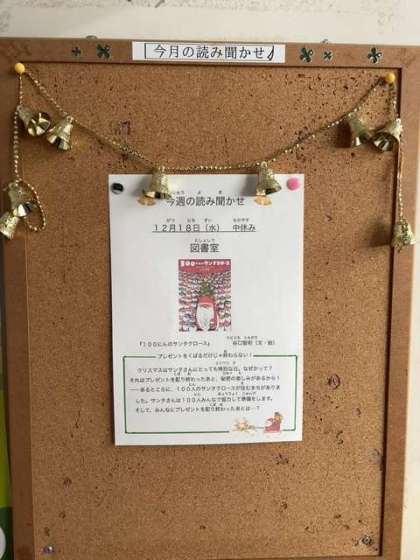 今月の読み聞かせ
今週の読み聞かせ
12月18日（水）　中休み
図書室
『100にんのサンタクロース』　谷口智則（文・絵）
プレゼントをくばるだけじゃ終わらない！
クリスマスはサンタさんにとっても特別な日。なぜかって？
それはプレゼントを配り終わったあと、秘密の楽しみがあるから！
──あるところに、100人のサンタクロースが住むまちがありま
した。サンタさんは100人みんなで協力して準備をします。
そして、みんなにプレゼントを配り終わったあとは…？